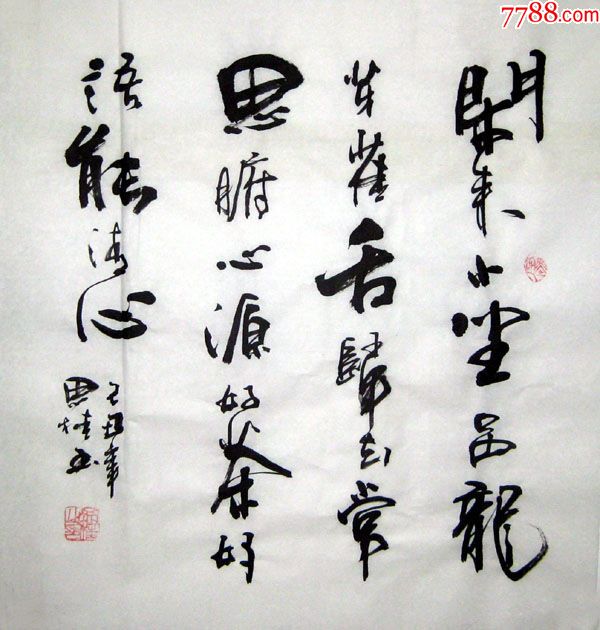 7788.com
閑来小坐品龍
芽雀舌歸去常
思腑心源好茶好
語能清心
己丑年
思书